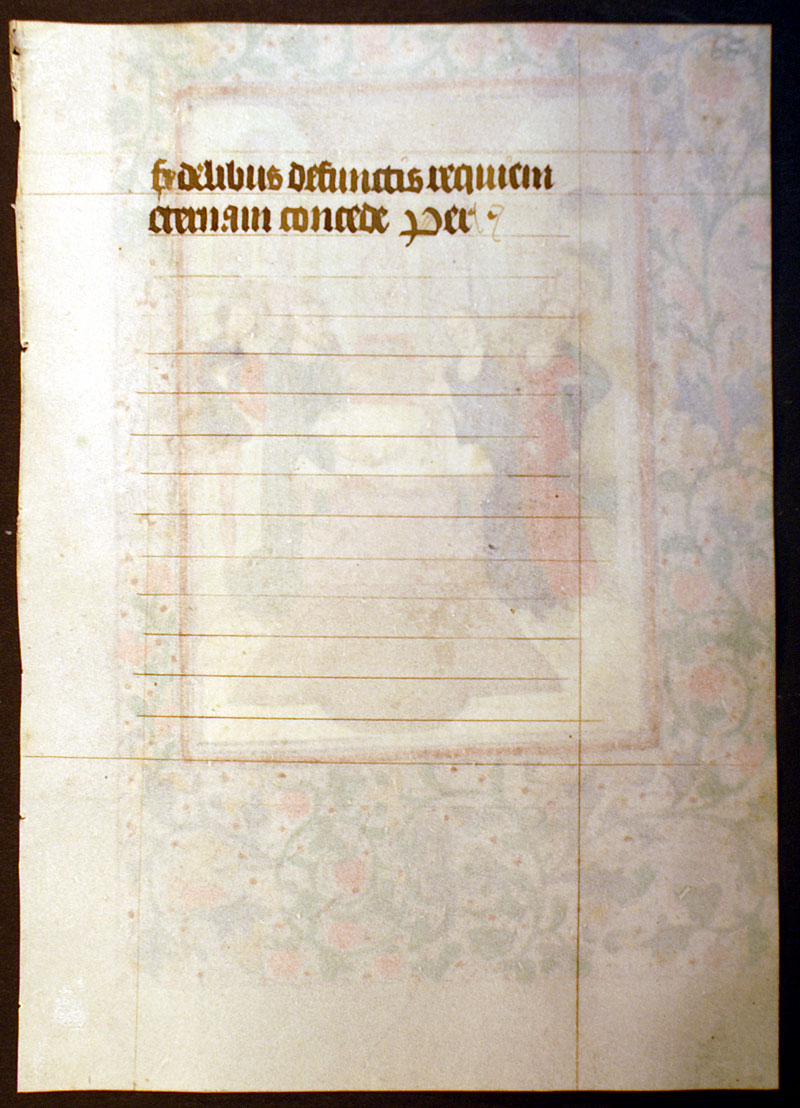 fidelibus defunctis requiem
eternam concede Per